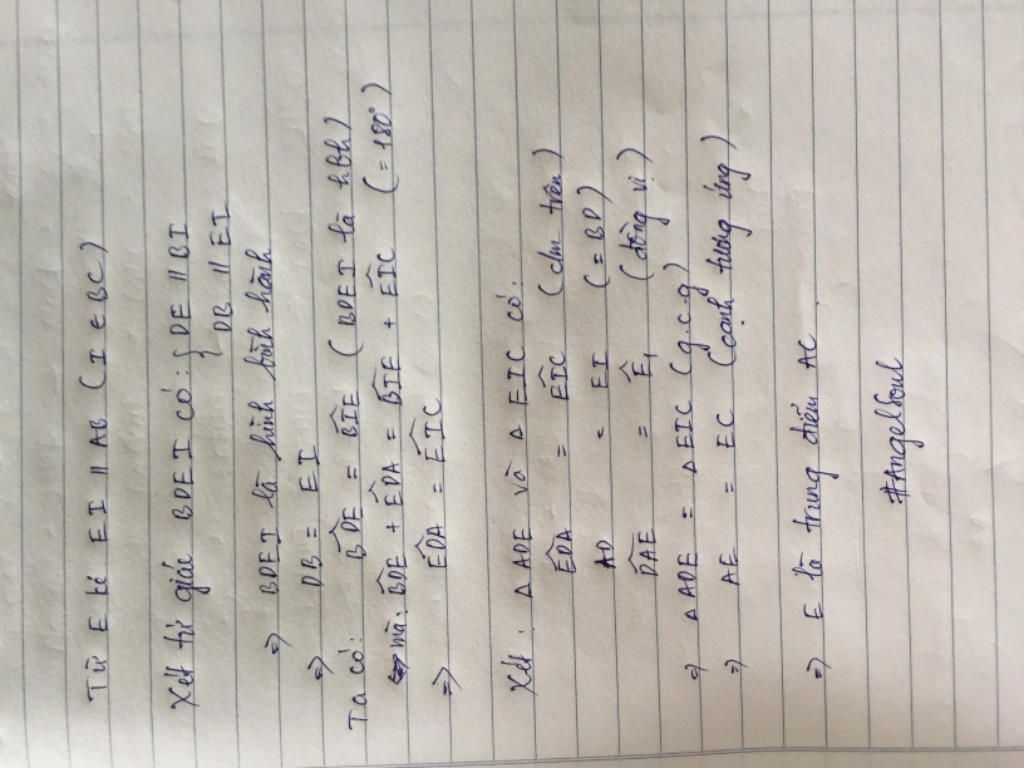 Từ E kẻ EI // AB ( I ∈ BC )
Xét tứ giác BDEI có : { DE // BI
DB // EI
=> BDEI là hình bình hành
=> DB = EI
Ta có : B̂DE = B̂IE ( BDEI là hBh )
mà : B̂DE + ÊDA = B̂IE + ÊIC ( = 180° )
=> ÊDA = ÊIC
Xét : Δ ADE và Δ EIC có :
ÊDA = ÊIC ( cm trên )
AD = EI ( = BD )
D̂AE = Ê₁ ( đồng vị )
=> Δ ADE = Δ EIC ( g.c.g )
=> AE = EC ( cạnh tương ứng )
=> E là trung điểm AC .
#AngelSoul